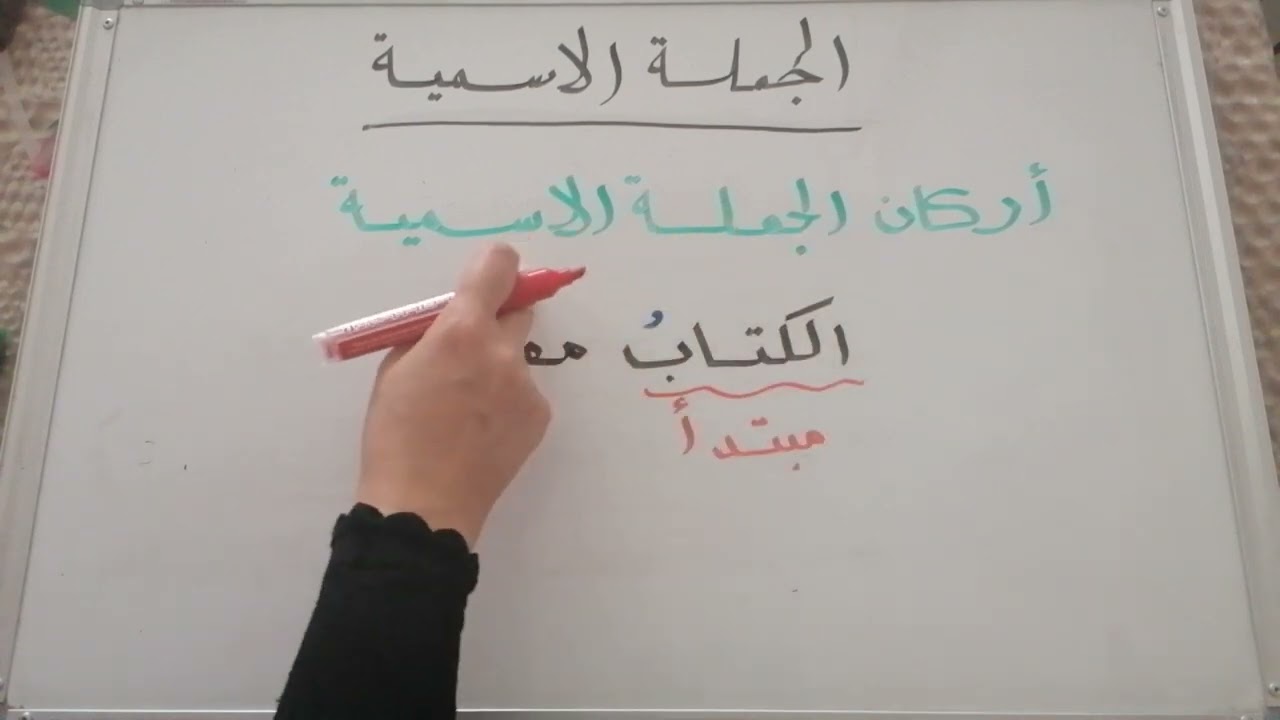 الجملة الاسمية
أركان الجملة الاسمية
الكتابُ
مبتدأ